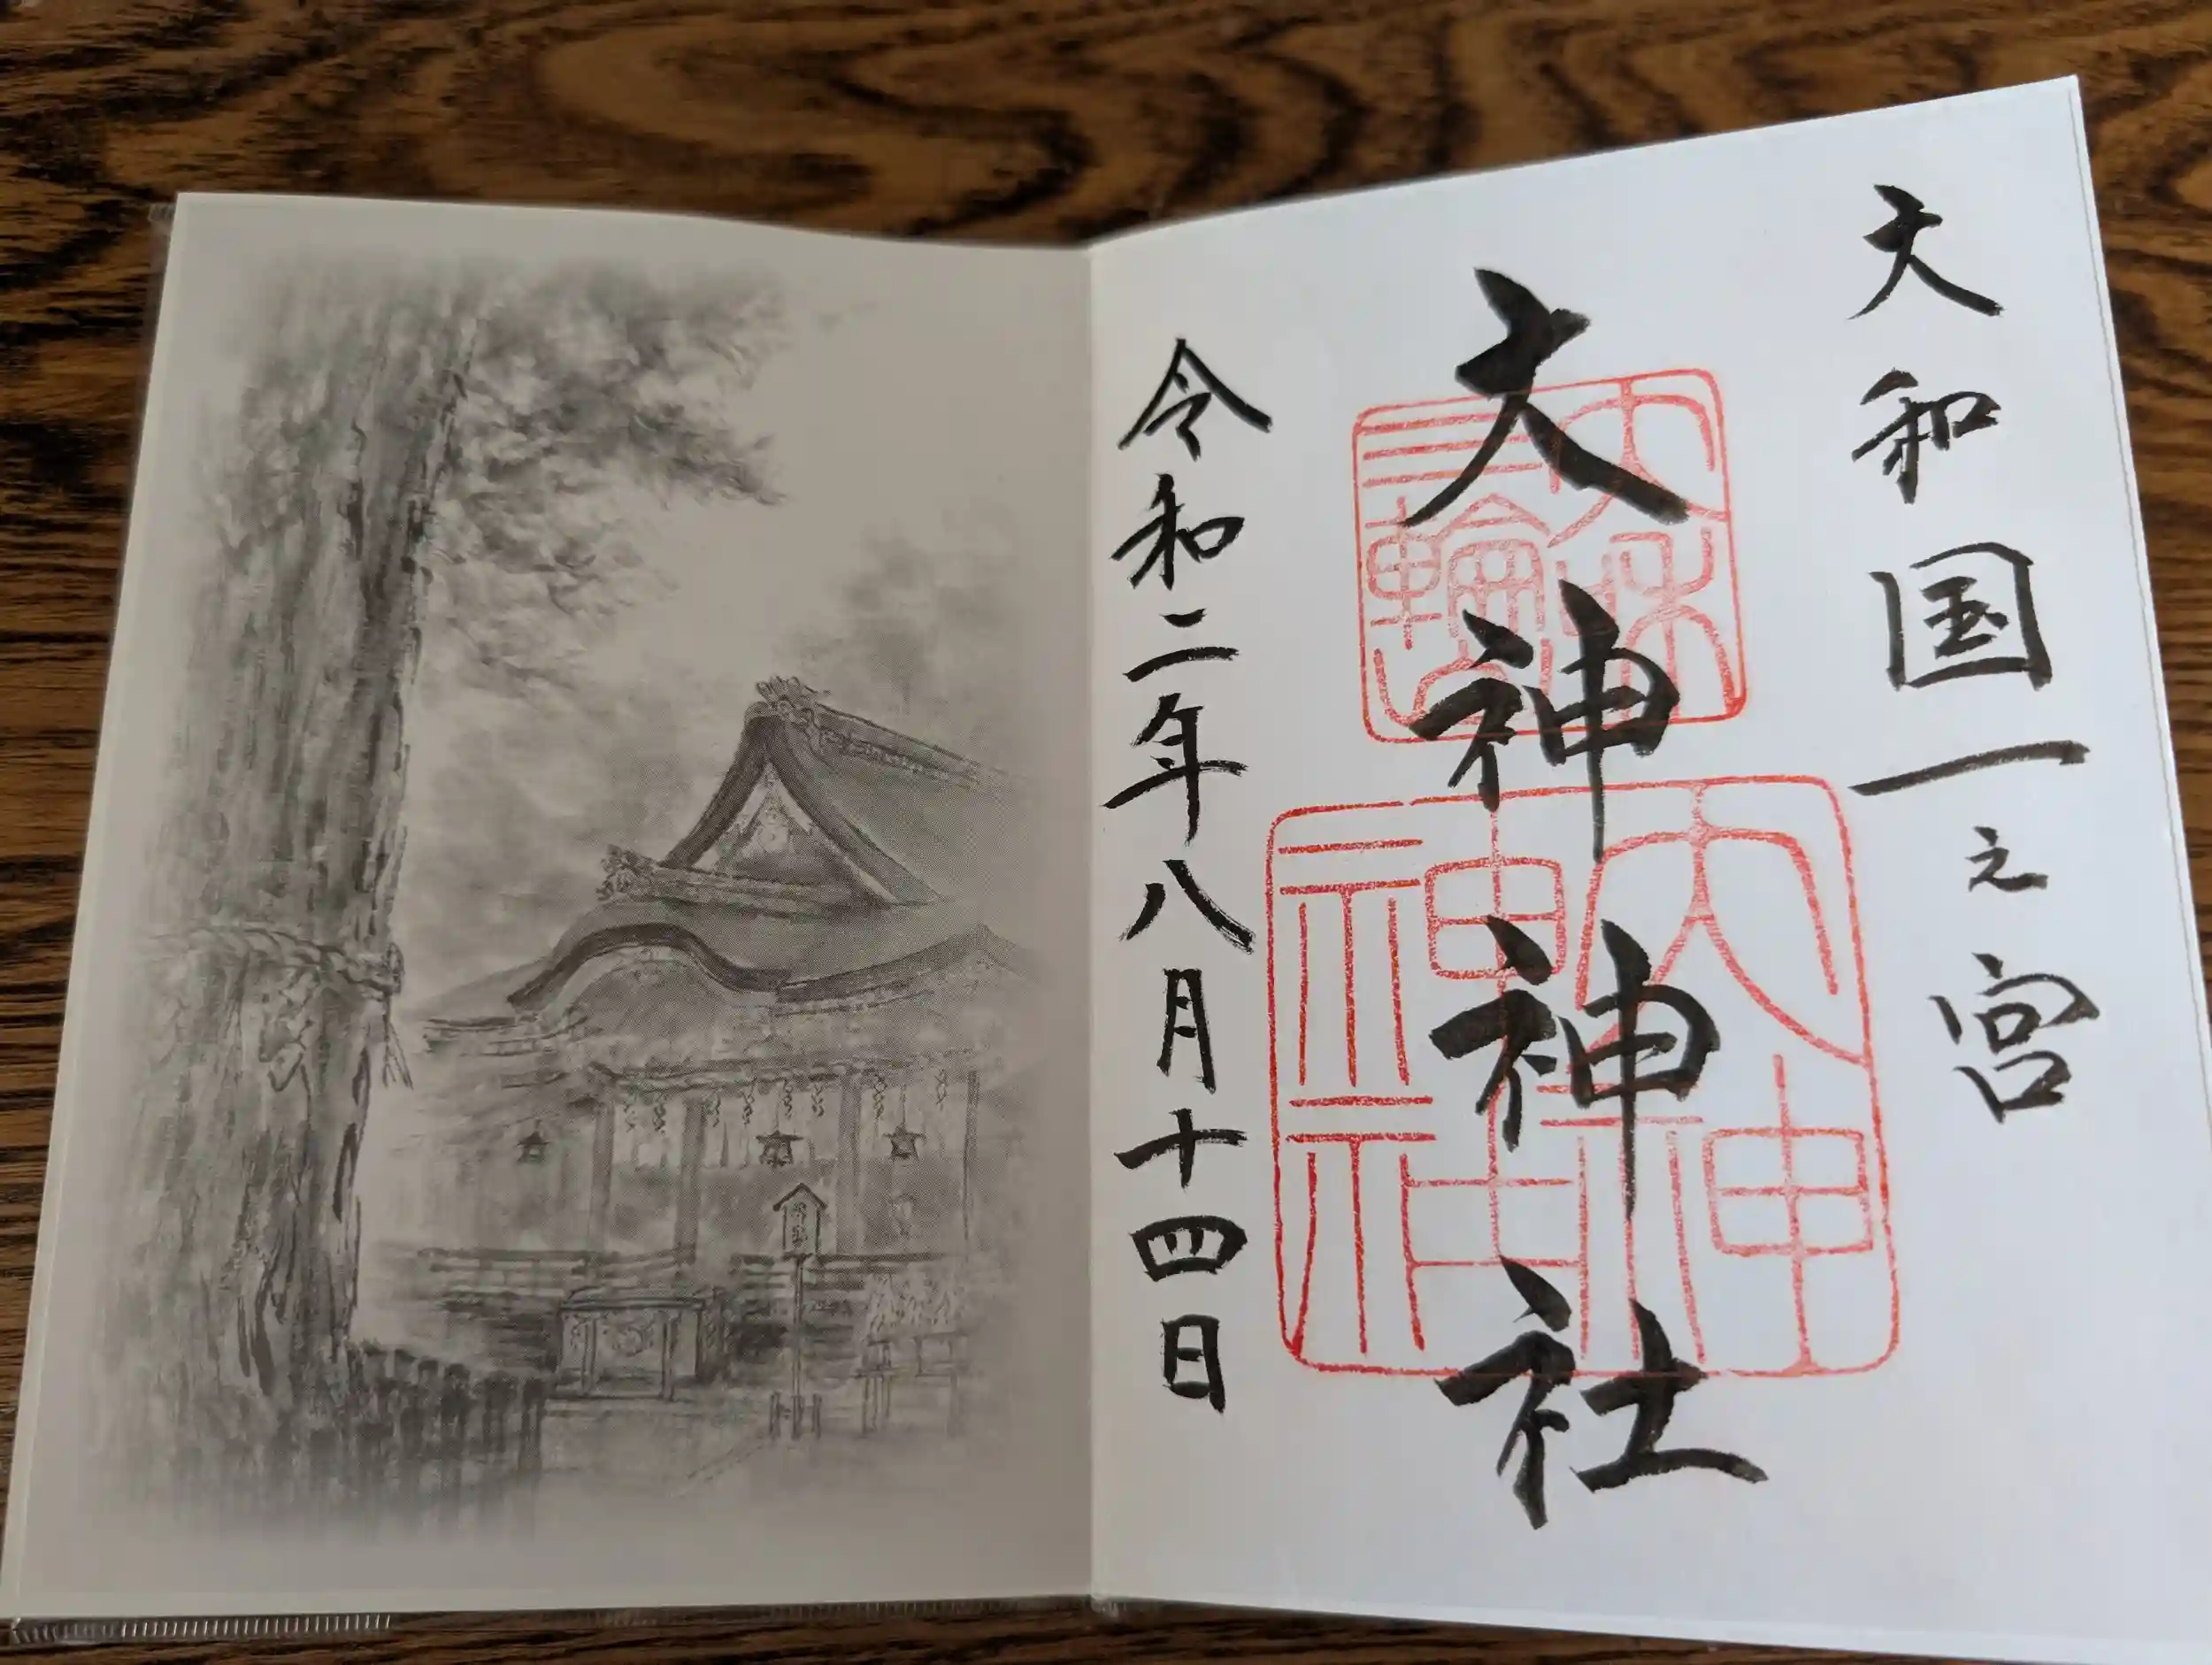 大和国一之宮
大神神社
令和二年八月十四日
大神
神社